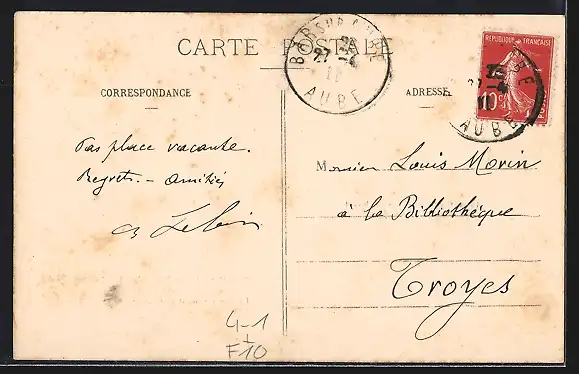 CARTE POSTALE
BAR SUR AUBE
27 -4
11
AUBE
REPUBLIQUE FRANÇAISE
10
CORRESPONDANCE
ADRESSE
Pas place vacante.
Regrets. - Amitiés
Monsieur Louis Morin
à la Bibliothèque
Troyes
4-1
F10